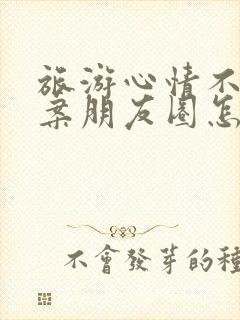 旅游心情不
案朋友圈怎
不會發芽的種